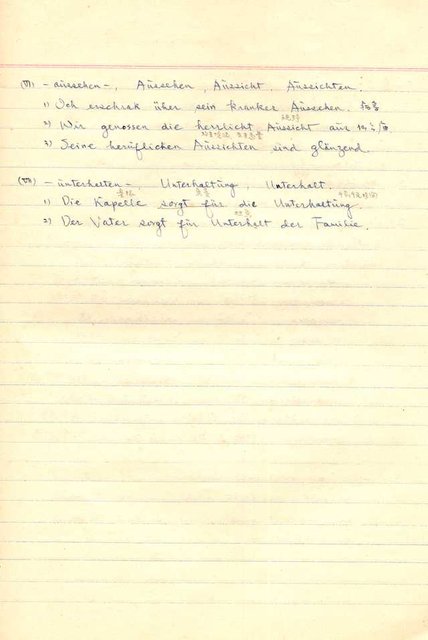 - aussehen -, Aussehen, Aussicht. Aussichten.
1) Ich erschrak über sein kranker Aussehen.
2) Wir genossen die herrlicht Aussicht aus
3) Seine beruflichen Aussichten sind glänzend.
- unterhalten -, Unterhaltung, Unterhalt.
1) Die Kapelle sorgt für die Unterhaltung.
2) Der Vater sorgt für Unterhalt der Familie.